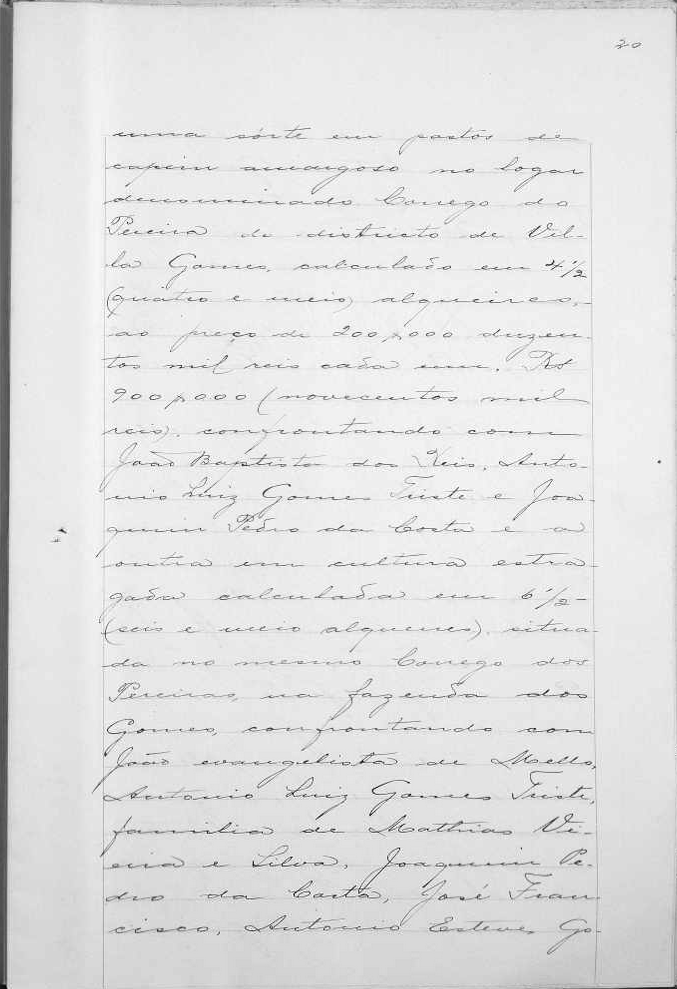 20
uma sórte em pastos de
capim amargoso no logar
denominado Corrego do
Pereira do districto de Vil-
la Gomes, calculado em 4 1/2
(quatro e meio) alqueires,-
ao preço de 200$000 duzen-
tos mil reis cada um. Rs
900$000 (novecentos mil
reis), confrontando com
João Baptista dos Reis, Anto-
nio Luiz Gomes Triste e Joa-
quim Pedro da Costa e a
outra em cultura estra-
gada calculada em 6 1/2-
(seis e meio alqueires), situa-
da no mesmo Corrego dos
Pereiras, na fazenda dos
Gomes, confrontando com
João evangelista de Mello,
Antonio Luiz Gomes Triste,
familia de Mathias Vi-
eira e Silva, Joaquim Pe-
dro da Costa, José Fran-
cisco, Antonio Esteves Go-